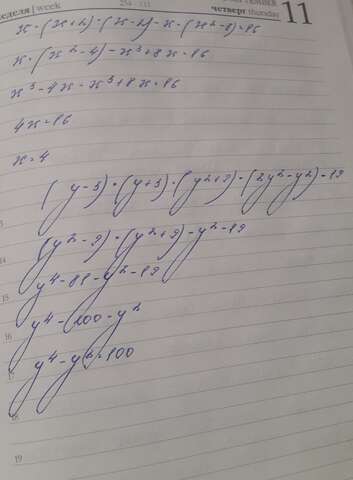 неделя | week 254 - 111 четверг thursday 11
x · (x + 2) · (x - 2) - x · (x² - 8) = 16
x · (x² - 4) - x³ + 8x = 16
x³ - 4x - x³ + 8x = 16
4x = 16
x = 4
(y - 3) · (y + 3) · (y² + 9) · (2y² - y²) - 19
14
(y² - 9) · (y² + 9) - y² - 19
15
y⁴ - 81 - y² - 19
16
y⁴ - 100 - y²
17
y⁴ - y² - 100
18
19